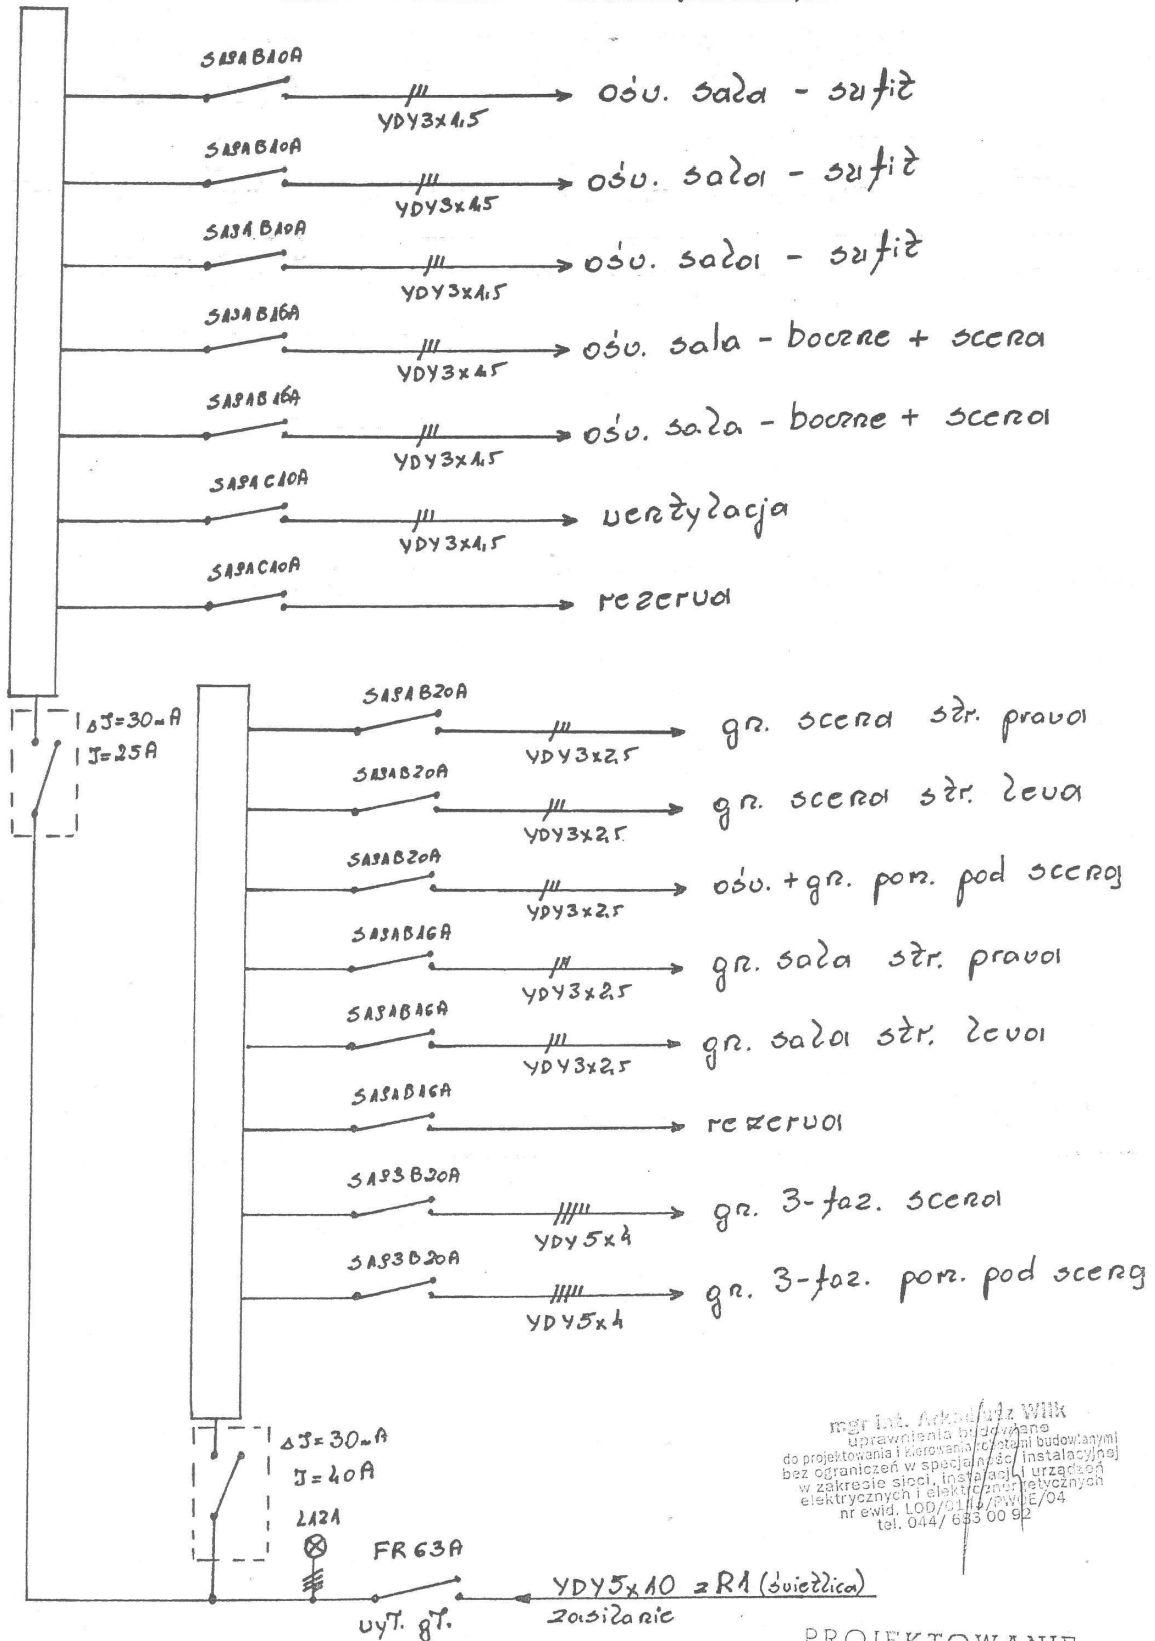 S191B10A
YDY3x1,5
ośw. sala - sufit
S191B10A
YDY3x1,5
ośw. sala - sufit
S191B10A
YDY3x1,5
ośw. sala - sufit
S191B16A
YDY3x1,5
ośw. sala - boczne + scena
S191B16A
YDY3x1,5
ośw. sala - boczne + scena
S191C10A
YDY3x1,5
wentylacja
S191C10A
rezerwa
ΔI=30mA
I=25A
S191B20A
YDY3x2,5
gn. scena str. prawa
S191B20A
YDY3x2,5
gn. scena str. lewa
S191B20A
YDY3x2,5
ośw. + gn. pom. pod sceną
S191B16A
YDY3x2,5
gn. sala str. prawa
S191B16A
YDY3x2,5
gn. sala str. lewa
S191B16A
rezerwa
S193B20A
YDY5x4
gn. 3-faz. scena
S193B20A
YDY5x4
gn. 3-faz. pom. pod sceną
ΔI=30mA
I=40A
L121
FR63A
wył. gł.
YDY5x10 z R1 (świetlica)
zasilanie
mgr inż. Arkadiusz Wilk
uprawnienia budowlane
do projektowania i kierowania robotami budowlanymi
bez ograniczeń w specjalności instalacyjnej
w zakresie sieci, instalacji i urządzeń
elektrycznych i elektroenergetycznych
nr ewid. LOD/ /PWOE/04
tel. 044/ 633 00 92
PROJEKTOWANIE